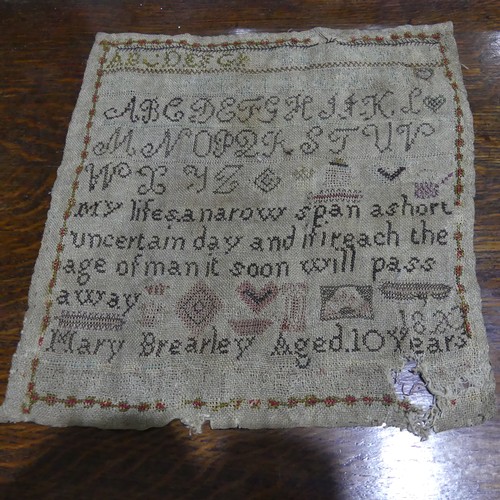 ABCDEFGH
ABCDEFGHIJKL
MNOPQRSTUV
WXYZ
My lifes a narow span a short
uncertain day and if i reach the
age of man it soon will pass
away
Mary Brearley Aged.10 Years